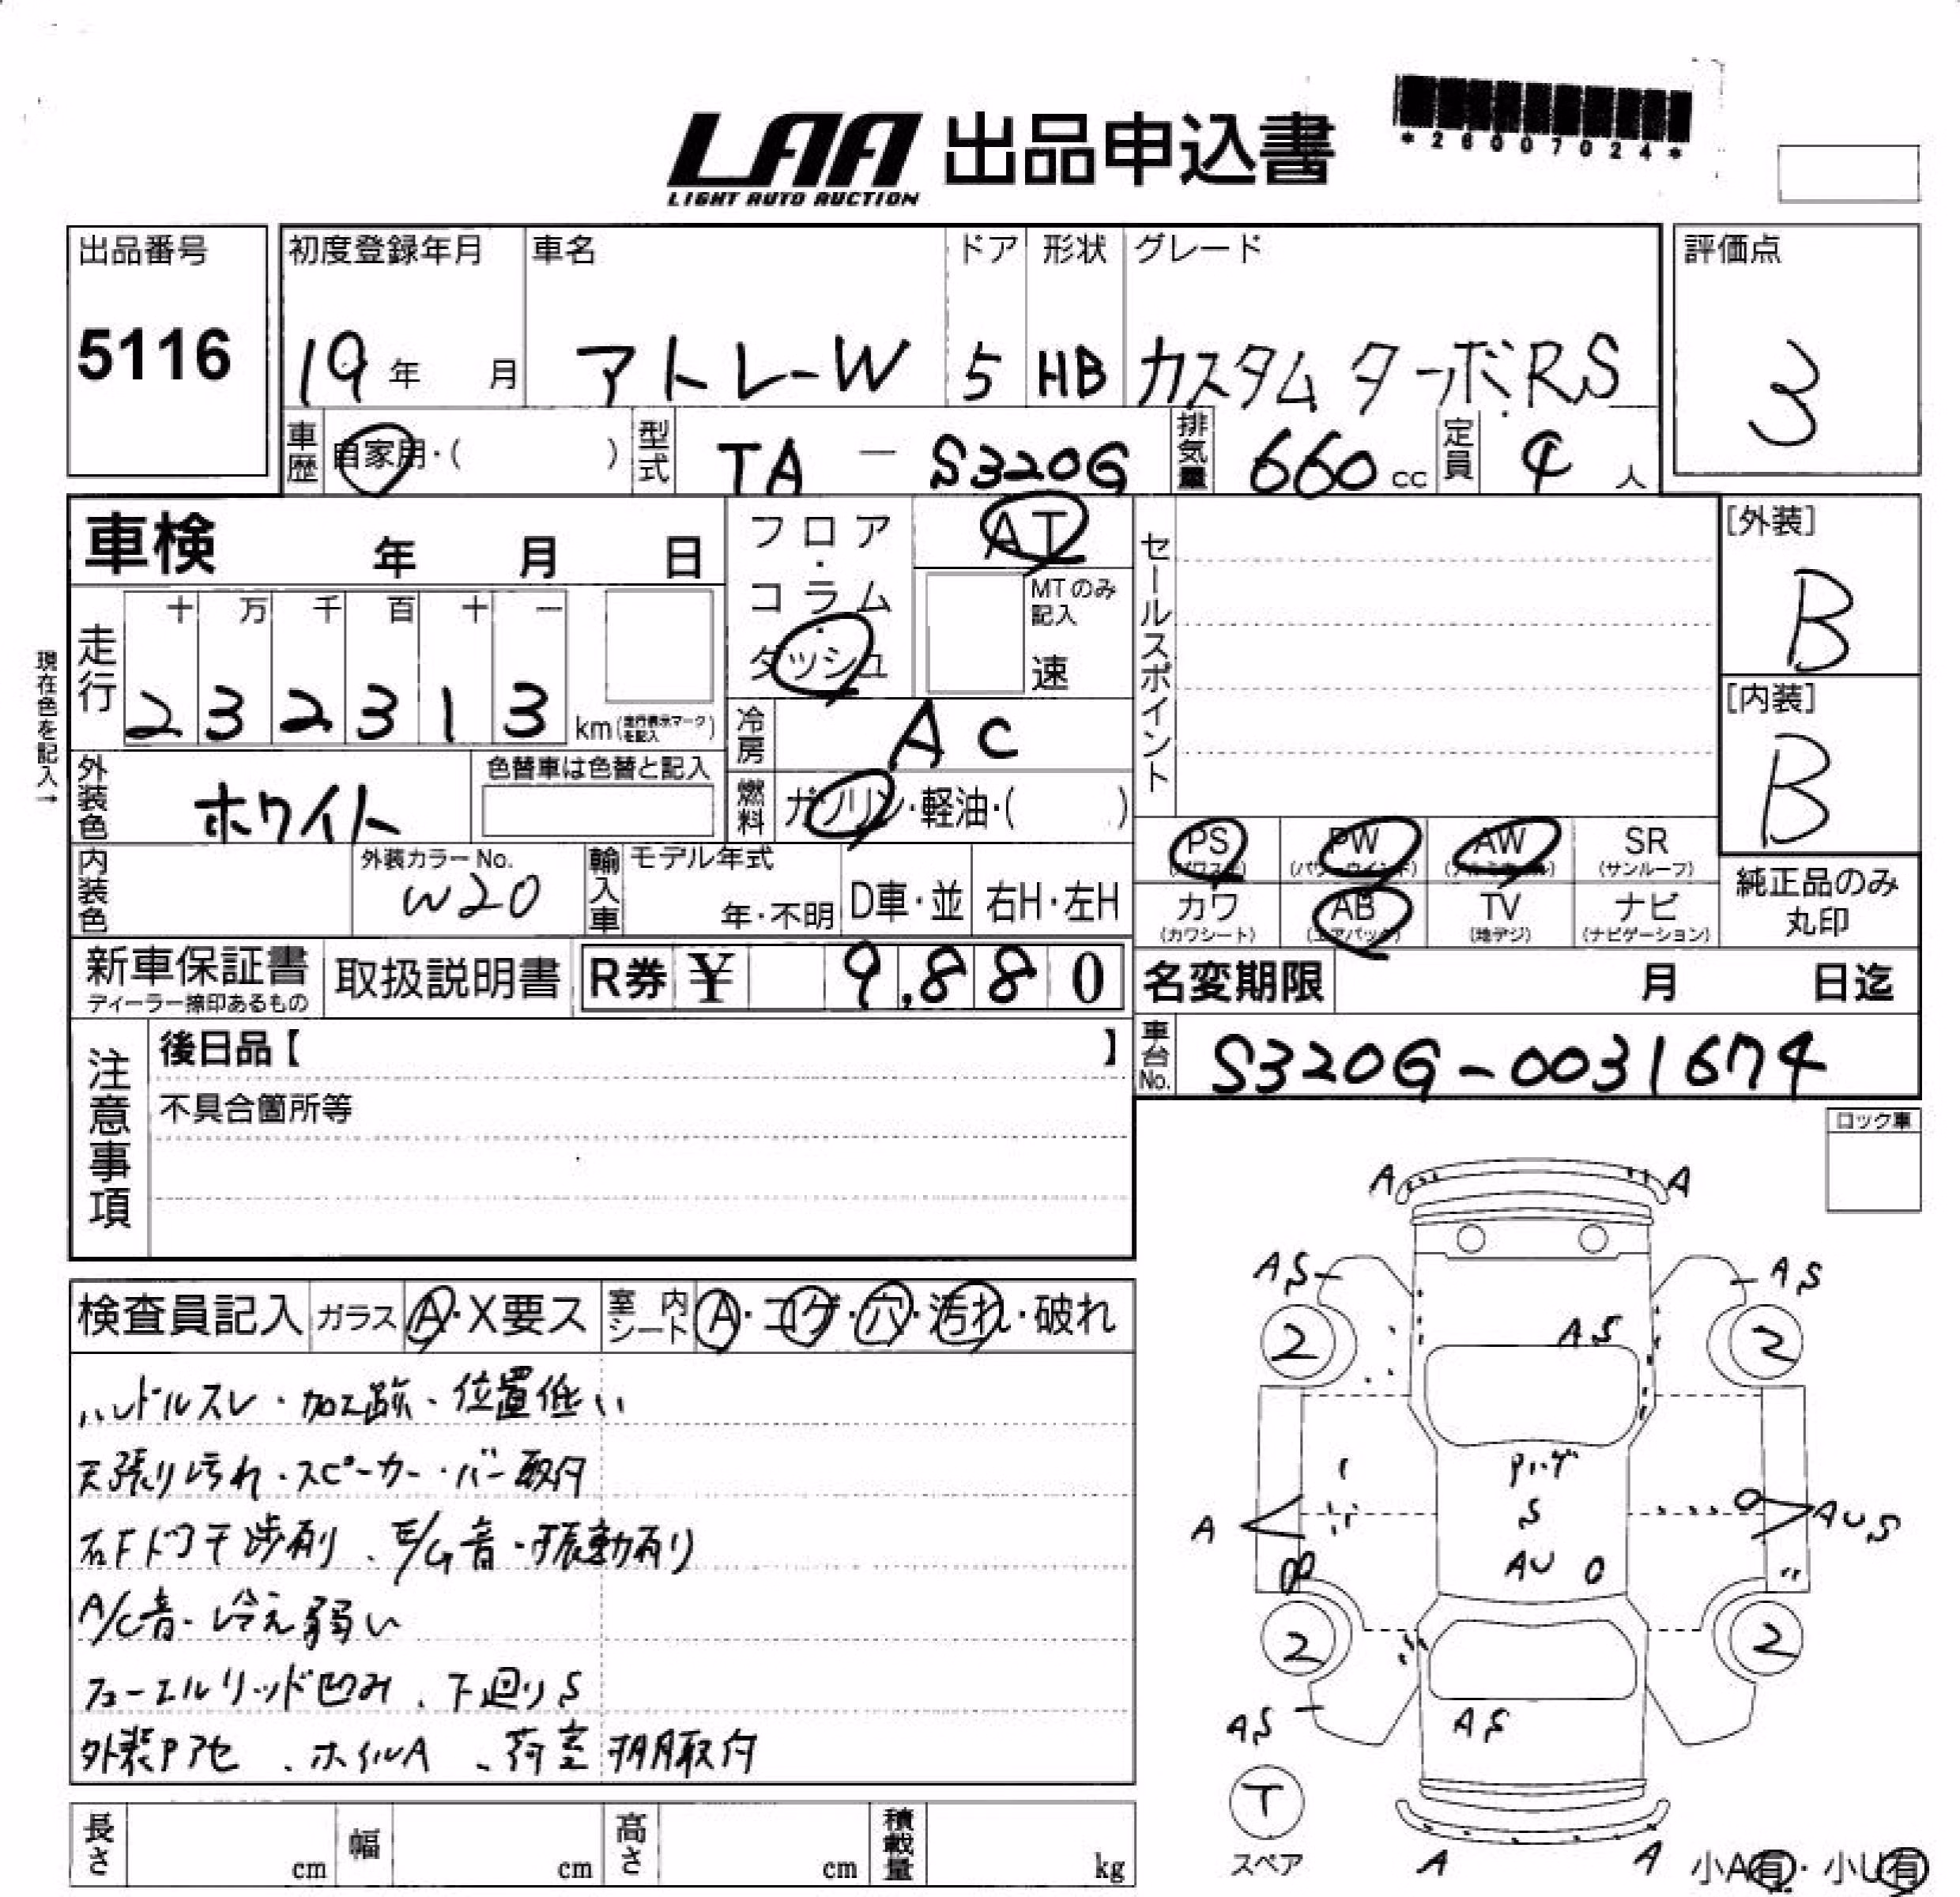 LAA 出品申込書
LIGHT AUTO AUCTION
*26007024*
出品番号 初度登録年月 車名 ドア 形状 グレード 評価点
5116 19年 月 アトレーW 5 HB カスタムターボRS 3
車歴 自家用・( ) 型式 TA - S320G 排気量 660cc 定員 4人
車検 年 月 日
フロア・コラム・ダッシュ
AT
MTのみ記入
速
セールスポイント
[外装]
B
[内装]
B
現在色を記入→
走行 十 万 千 百 十 一
2 3 2 3 1 3 km(走行表示マークを記入)
冷房 AC
燃料 ガソリン・軽油・( )
外装色 ホワイト 色替車は色替と記入
内装色 外装カラーNo. W20 輸入車 モデル年式 年・不明 D車・並 右H・左H
PS (パワステ) PW (パワーウインド) AW (アルミホイール) SR (サンルーフ)
カワ (カワシート) AB (エアバック) TV (地デジ) ナビ (ナビゲーション)
純正品のみ丸印
新車保証書 ディーラー捺印あるもの 取扱説明書 R券 ¥ 9,880
名変期限 月 日迄
車台No. S320G-0031674
注意事項 後日品【 】
不具合箇所等
ロック車
検査員記入 ガラス A・X要ス 室内シート A・コゲ・穴・汚れ・破れ
ハンドルスレ・加工跡、位置低い
天張り汚れ・スピーカー・バー取付
右Fドア干渉有り、E/G音・振動有り
A/C音・冷え弱い
フューエルリッド凹み、下廻りS
外装Pアセ、ホイルA、荷室
A A
AS AS
2 AS 2
Pハゲ
S
A AUS
AU
2 2
AS AS
T
スペア
A A
小A有・小U有
長さ cm 幅 cm 高さ cm 積載量 kg